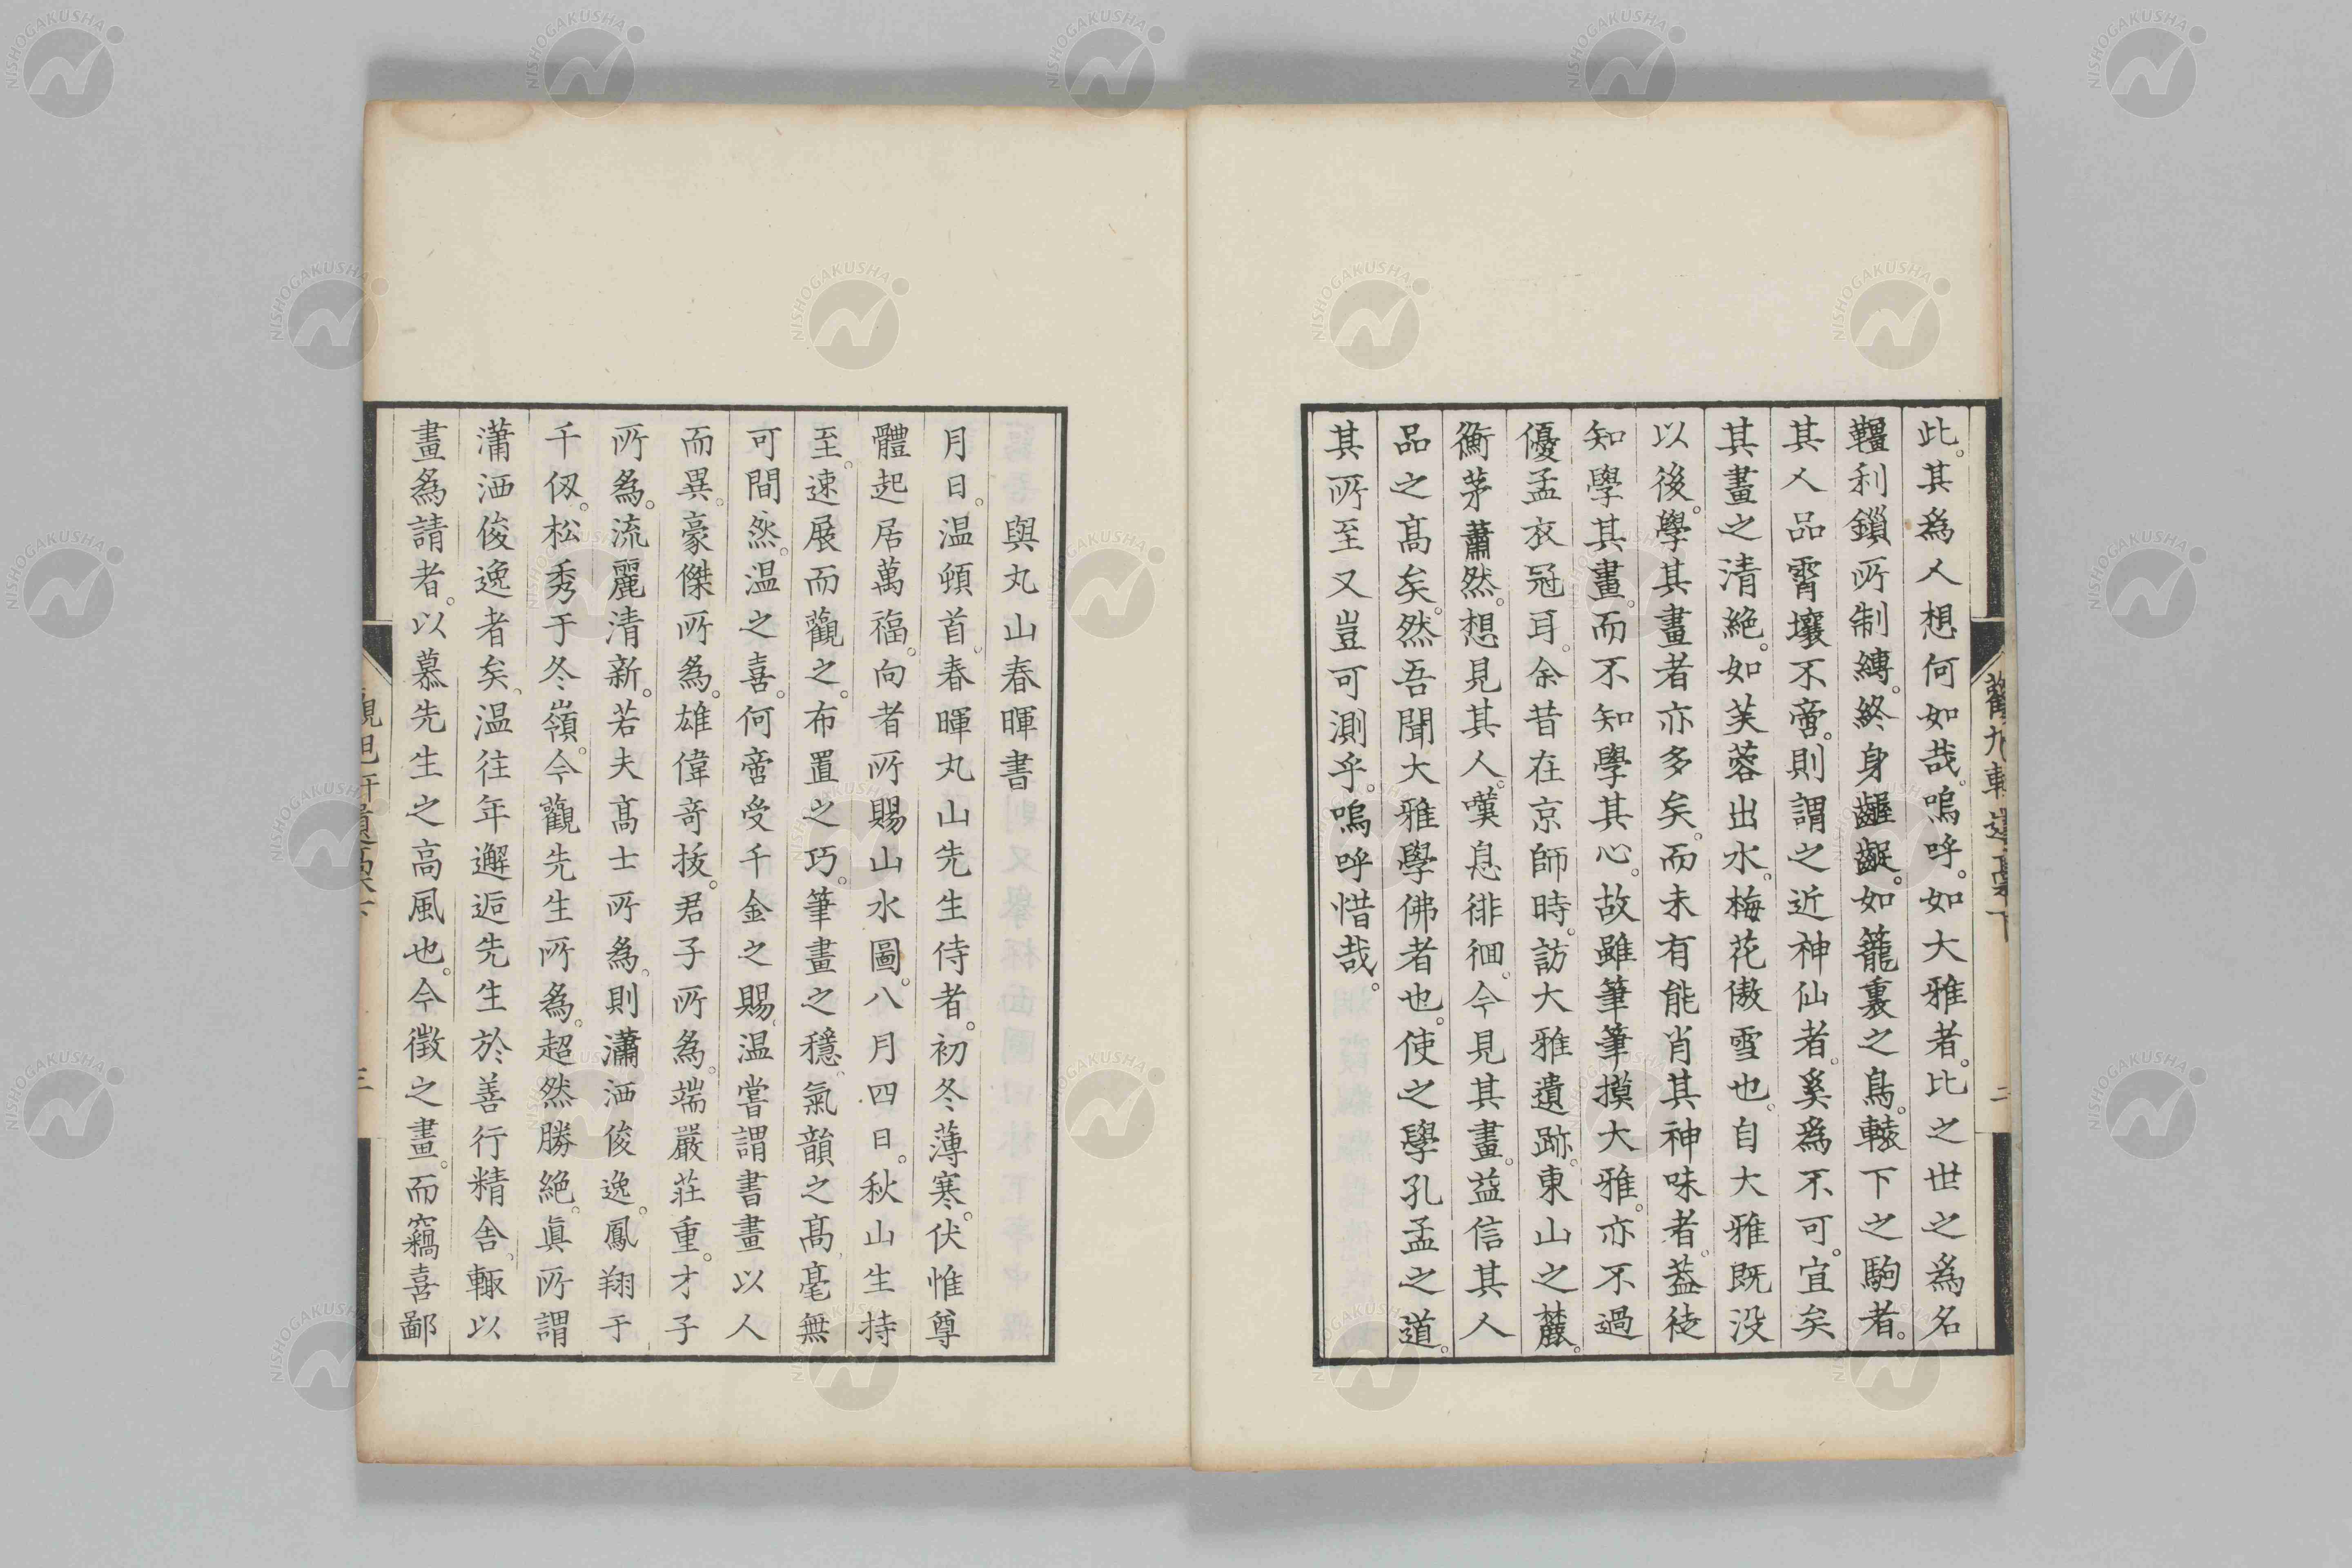 此。其爲人想何如哉。嗚呼。如大雅者。比之世之爲名
韁利鎖所制縛。終身齷齪。如籠裏之鳥。轅下之駒者。
其人品霄壤不啻。則謂之近神仙者。奚爲不可。宜矣
其畫之清絶。如芙蓉出水。梅花傲雪也。自大雅既没
以後。學其畫者亦多矣。而未有能肖其神味者。葢徒
知學其畫。而不知學其心。故雖筆筆摸大雅。亦不過
優孟衣冠耳。余昔在京師時。訪大雅遺跡。東山之麓。
衡茅蕭然。想見其人。嘆息徘徊。今見其畫。益信其人
品之髙矣。然吾聞大雅學佛者也。使之學孔孟之道。
其所至又豈可測乎。嗚呼惜哉。
與丸山春暉書
月日。温頓首。春暉丸山先生侍者。初冬薄寒。伏惟尊
體起居萬福。向者所賜山水圖。八月四日。秋山生持
至。速展而觀之。布置之巧。筆畫之穩。氣韻之髙。毫無
可間然。温之喜。何啻受千金之賜。温嘗謂書畫以人
而異。豪傑所爲。雄偉奇拔。君子所爲。端嚴莊重。才子
所爲。流麗清新。若夫髙士所爲。則瀟洒俊逸。鳳翔于
千仭。松秀于冬嶺。今觀先生所爲。超然勝絶。眞所謂
瀟洒俊逸者矣。温往年邂逅先生於善行精舍。輙以
畫爲請者。以慕先生之高風也。今徵之畫。而竊喜鄙